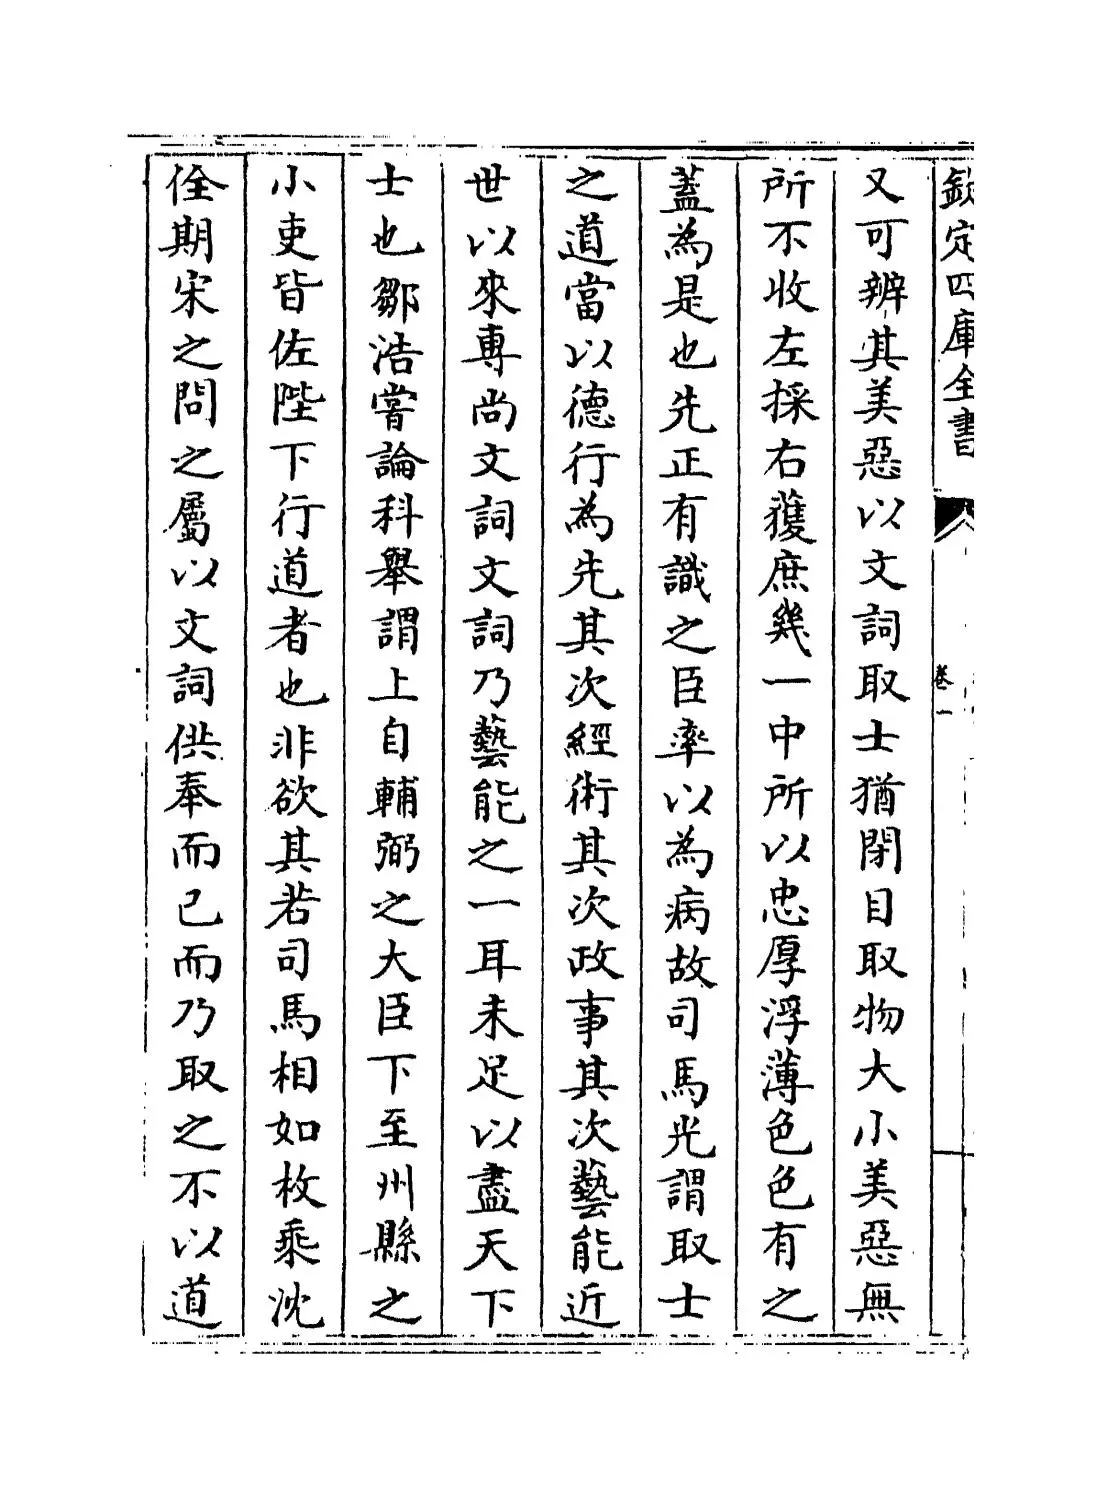 欽定四庫全書
卷一
又可辨其美惡以文詞取士猶閉目取物大小美惡無
所不收左採右獲庶幾一中所以忠厚浮薄色色有之
蓋為是也先正有識之臣率以為病故司馬光謂取士
之道當以德行為先其次經術其次政事其次藝能近
世以來專尚文詞文詞乃藝能之一耳未足以盡天下
士也鄒浩嘗論科舉謂上自輔弼之大臣下至州縣之
小吏皆佐陛下行道者也非欲其若司馬相如枚乘沈
佺期宋之問之屬以文詞供奉而已而乃取之不以道